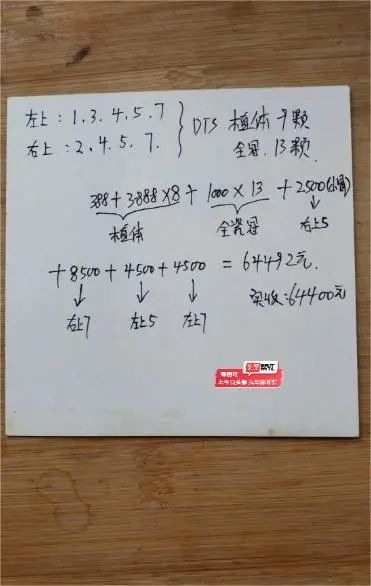 左上：1.3.4.5.7
右上：2.4.5.7.
} DTS 植体 9颗
全冠 13颗
388+3888×8+1000×13+2500
植体 全瓷冠 右上5
+8500+4500+4500=64492元.
右上7 左上5 左上7
实收:64400元